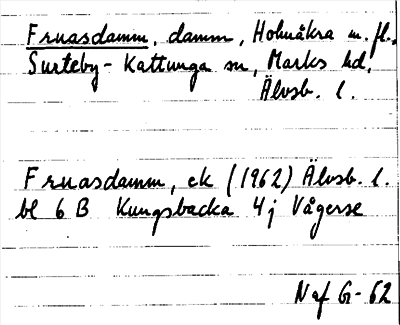 Fruasdamm, damm, Holmåkra m. fl.,
Surteby-Kattunga sn, Marks hd,
Älvsb. l.
Fruasdamm, ek (1962) Älvsb. l.
bl 6 B Kungsbacka 4 j Vågerse
Naf G-62